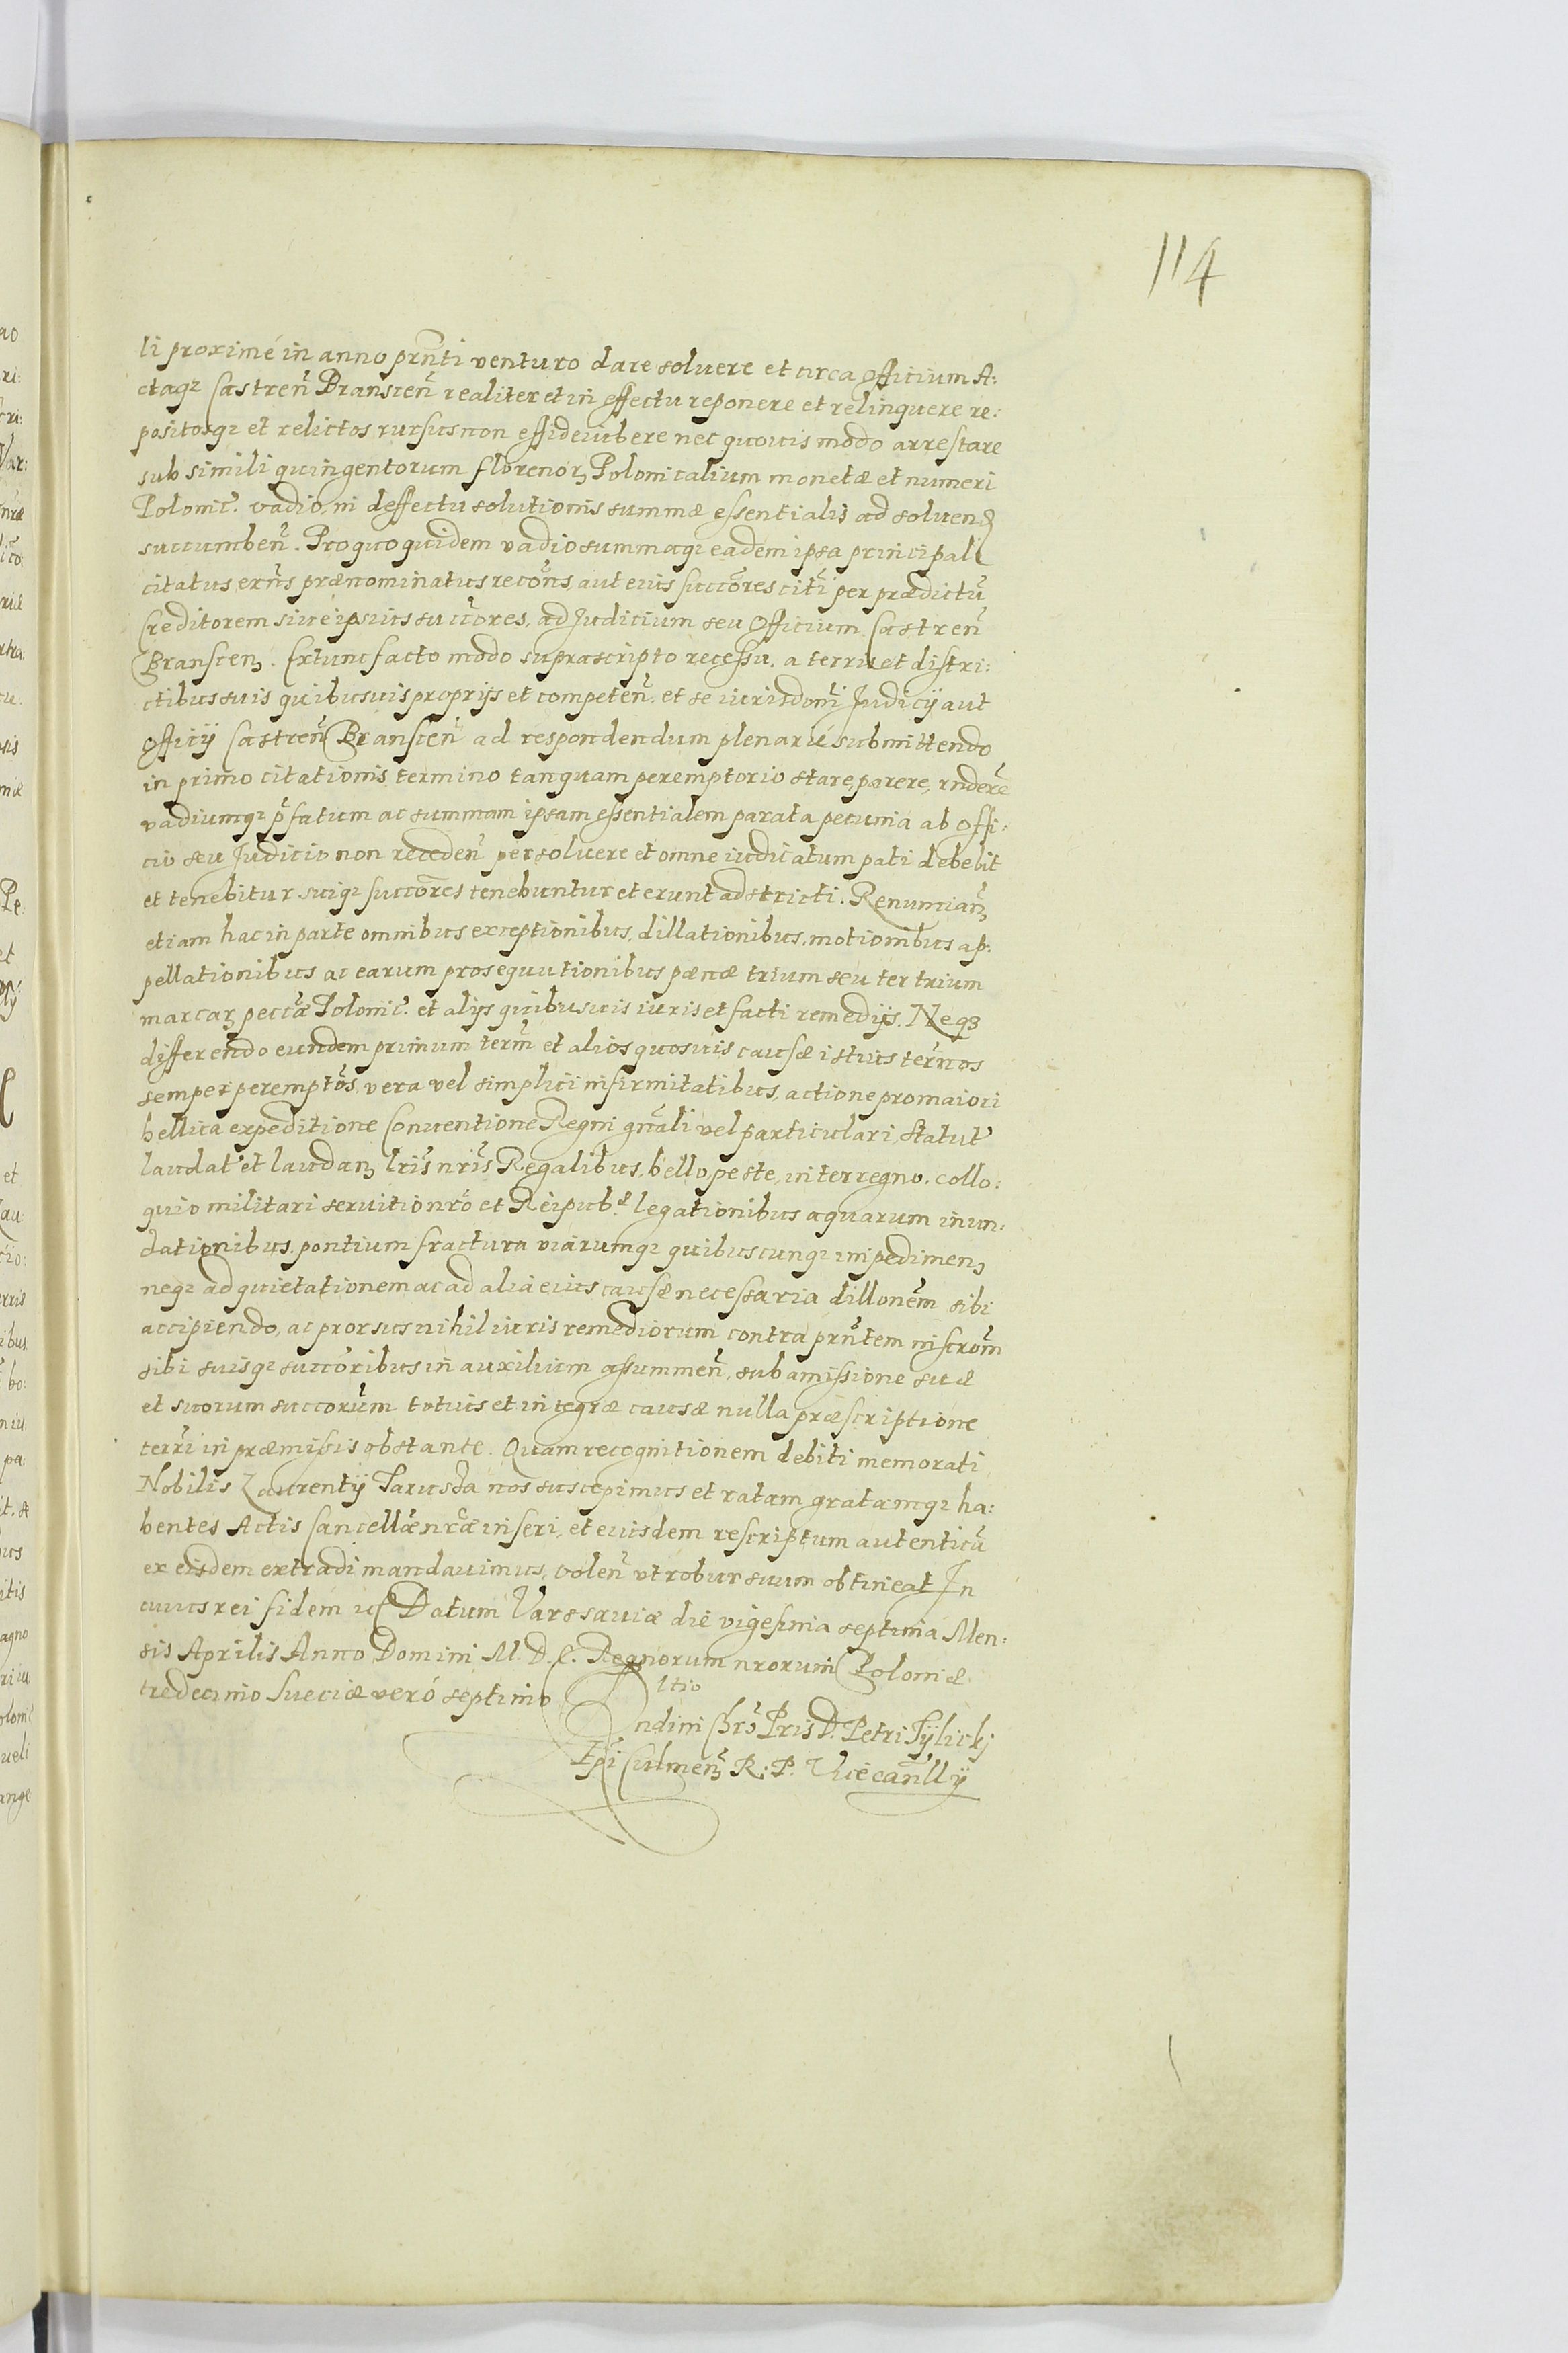 114
li proximé in anno prn̄ti venturo dare soluere et circa Officium A:
ctaqʒ Castren̄ Branscen̄ realiter et in effectu reponere et relinquere re:
positosqʒ et relictos rursus non effideiubere nec quouis modo arrestare
sub simili quingentorum florenoꝝ Polonicalium monetæ et numeri
Polonic̄. vadio, in deffectu solutionis summæ essentialis ad soluend̄
succumben̄. Pro quo quidem vadio summaqʒ eadem ipsa principali
citatus exn̄s prænominatus recon̄s, aut eius succōres citi̅ per prædictū
Creditorem siue ipsius succōres, ad Judicium seu Officium Castren̄
Branscenꝫ. Extunc facto modo suprascripto recessu. a terris et distri:
ctibus suis quibusuis proprijs et competen̄. et se iurisdoni̅ Judicij aut
Officij Castren̄ Branscen̄ ad respondendum plenariè submittendo
in primo citationis termino tanquam peremptorio stare, parere, rndere̅
vadiumqʒ p̄fatum ac summam ipsam essentialem parata pecunia ab Offi:
cio seu Judicio non receden̄ persoluere et omne iudicatum pati debebit
et tenebitur suiqʒ succōres tenebuntur et erunt adstricti. Renuncianꝫ
etiam hac in parte omnibus exceptionibus, dillationibus, motionibus ap:
pellationibus ac earum prosequutionibus pænæ trium seu ter trium
marcaꝝ peccæ̅ Polonic̄. et alijs quibusuis iuris et facti remedijs. Neqʒ
differendo eundem primum term̄ et alios quosuis causæ istius tern̄os
semper peremptōs, vera vel simplici infirmitatibus, actione pro maiori
bellica expeditione Conuentione Regni gn̄ali vel particulari, statut̓
laudat̓ et laudanꝫ lris̄ nris̄ Regalibus, bello, peste, interregno, collo:
quio militari seruitio nrō et Reipub.æ legationibus aquarum inun:
dationibus, pontium fractura viarumqʒ quibuscunqʒ impedimenꝫ
neqʒ ad quietationem ac ad alia eius causæ necessaria dillonem̄ sibi
accipiendo, ac prorsus nihil iuris remediorum contra prn̄tem inscrom̄
sibi suisqʒ succōribus in auxilium assummen̄, sub amissione suæ
et suorum succorum̄ totius et integræ causæ nulla præscriptione
terri̅ in præmissis obstante. Quam recognitionem debiti memorati
Nobilis Laurentij Tarusda nos suscepimus et ratam gratamqʒ ha:
bentes Actis Cancellæ̅ nræ̅ inseri, et eiusdem rescriptum autenticū
ex eisdem extradi mandauimus, volen̄ vt robur suum obtineat In
cuius rei fidem ꝛc Datum Varssauiæ die vigesima septima Men:
sis Aprilis Anno Domini M. D. C. Regnorum nrorum̄ Poloniæ
tredecimo Sueciæ veró septimo
ltio
Rndini Chrō Pris D. Petri Tÿlickj
Epi̅ Culmenꝫ R: P. Vicecan̄llÿ